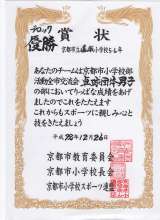 ブロック
優勝
賞状
京都市立 小学校5・6年
あなたのチームは京都市小学校部
活動全市交流会 男子
の部においてりっぱな成績をあげ
ましたのでこれをたたえます
これからもスポーツに親しみ心と
技をきたえましょう
平成28年12月26日
京都市教育委員会
京都市小学校長会
京都市小学校スポーツ連盟